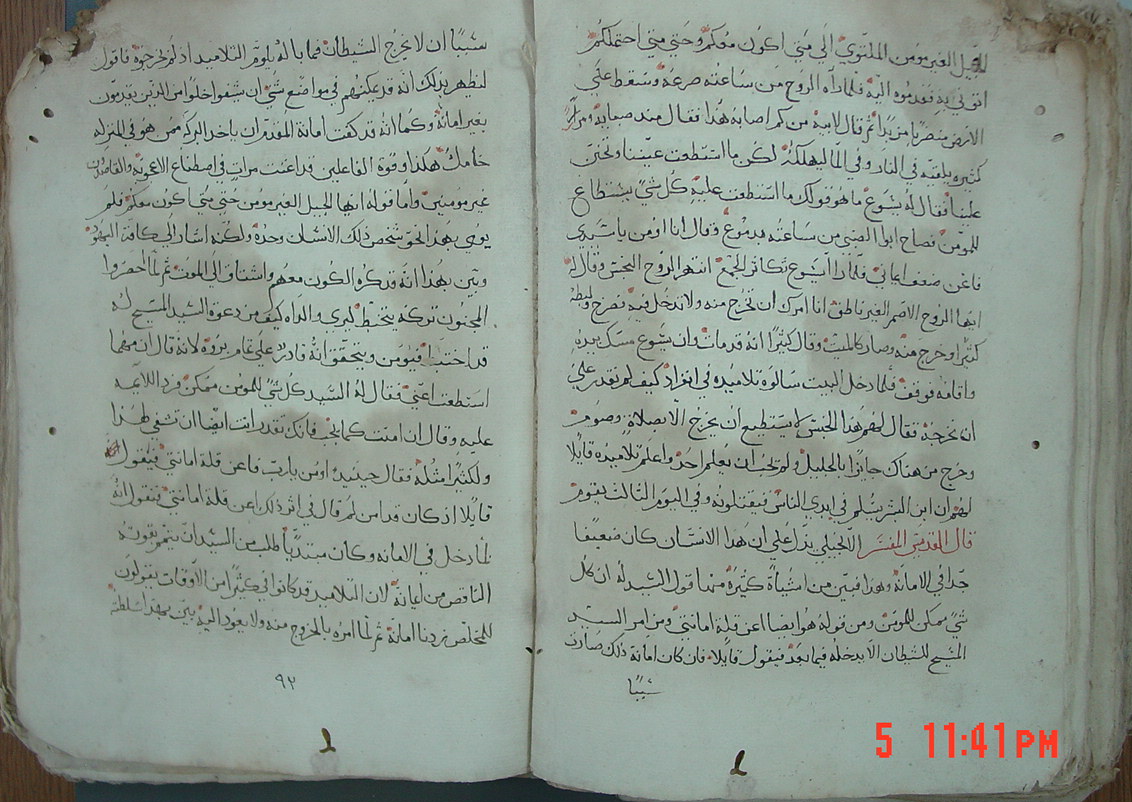 الجيل الغير مومن الملتوي الى متى اكون معكم وحتى متى احتملكم
اتوني به فقدموه اليه فلما راه الروح من ساعته صرعه وسقط على
الارض ثم قال لابيه من كم اصابه هذا فقال منذ صباه ومرارًا
كثيره يلقيه في النار وفي الما ليهلكه لكن ما استطعت عيننا وتحنن
علينا فقال له يشوع ما هو قولك ما استطعت عليه كل شي يستطاع
للمومن فصاح ابوا الصبي من ساعته بدموع وقال انا اومن يا سيدي
فاعن ضعف ايماني فلما را ايشوع تكاثر الجمع انتهر الروح النجس وقال له
ايها الروح الاصم الغير ناطق انا امرك ان تخرج منه ولا تدخل فيه فصرخ ولبطه
كثيرًا وخرج منه وصار كالميت وقال كثيرًا انه قد مات وان يشوع مسك بيده
واقامه فوقف فلما دخل البيت سالوه تلاميذه في انفراد كيف لم نقدر على
ان نخرجه فقال لهم هذا الجنس لا يستطيع ان يخرج الا بصلاة وصوم
وخرج من هناك جايزًا بالجليل ولم يحب ان يعلم احد واعلم تلاميذه قايلا
لهم ان ابن البشر يسلم في ايدي الناس فيقتلونه وفي اليوم الثالث يقوم
قال القديس المفسر الانجيلي يدل على ان هذا الانسان كان ضعيفًا
جدًا في الامانه وهذا فبين من اشياة كثيره منها قول السيد له ان كل
شي ممكن للمومن ومن قوله هو ايضا اعن قلة امانتي ومن امر السيد
المسيح للشيطان الا يدخله فيما بعد فيقول قايلا فان كان امانة ذلك صارت
سببًا
سببًا ان لا يخرج الشيطان فما باله يلوم التلاميد اذ لم يخرجوه فاقول
ليظهر بذلك انه قد يمكنهم في مواضع شتى ان يشفوا خلوا من الذين يقدمون
بغير امانه وكما انه قد كفت امانة المقدم ان ياخد البركه ممن هو في المنزله
خامل هكذا وقوة الفاعلين قد اغنت مرات في اصطناع الاعجوبه والقاصدين
غير مومنين واما قوله ايها الجيل الغير مومن حتى متى اكون معكم فلم
يومي بهذا نحو شخص ذلك الانسان وحده ولكنه اشار الى كافة اليهود
وبين بهذا انه قد كره الكون معهم واشتاق الى الموت ثم لما احضروا
المجنون تركه يتخبط ليري والداه كيف من دعوة السيد المسيح له
قد فيومن ويتحقق انه قادر على يروه لانه قال ان مهما
استطعت اعني فقال له السيد كل شي للمومن ممكن فرد اللايمه
عليه وقال ان امنت كما يجب فانك تقدر انت ايضا ان تشفي هذا
ولكثير امثله فقال حينيد اومن يا رب فاعن قلة امانتي فيقول
قايلا اذ كان قد امن لم قال في اثر ذلك اعن قلة امانتي فنقول انه
لما دخل في الامانه وكان مبتديًا طلب من السيد ان يتمم بقوته
الناقص من ايمانه لان التلاميد قد كانوا في كثيرًا من الاوقات يقولون
للمخلص زدنا امانة ثم لما امره بالخروج منه ولا يعود اليه بين بهدا سلطته
٩٢
5 11:41PM